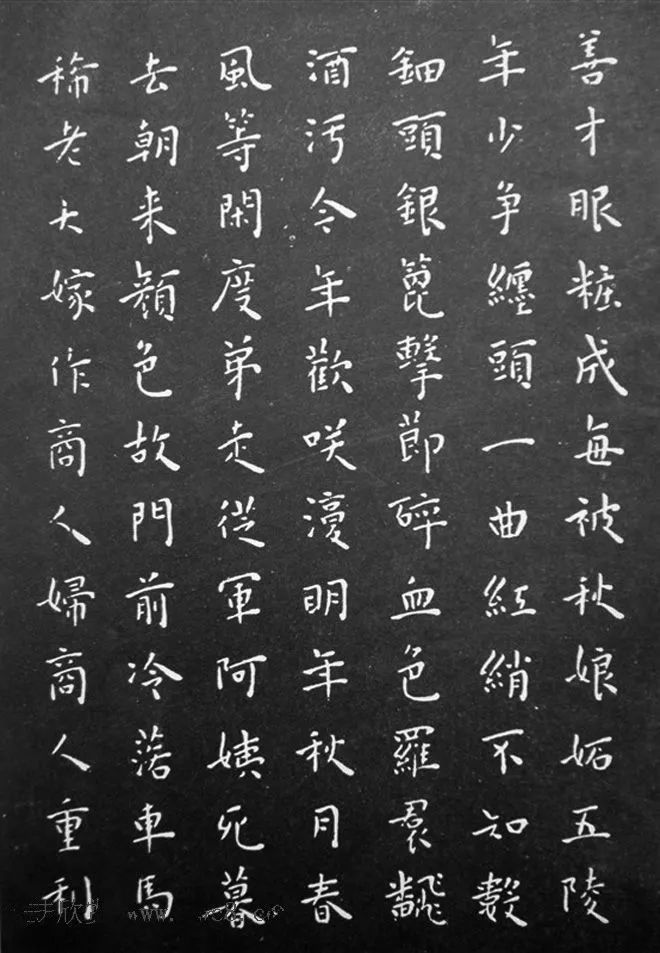 善才眼粧成每被秋娘妬五陵
年少争纏頭一曲紅綃不知數
鈿頭銀篦擊節碎血色羅裙飜
酒污今年歡咲復明年秋月春
風等閑度弟走從軍阿姨死暮
去朝来顔色故門前冷落車馬
稀老大嫁作商人婦商人重利